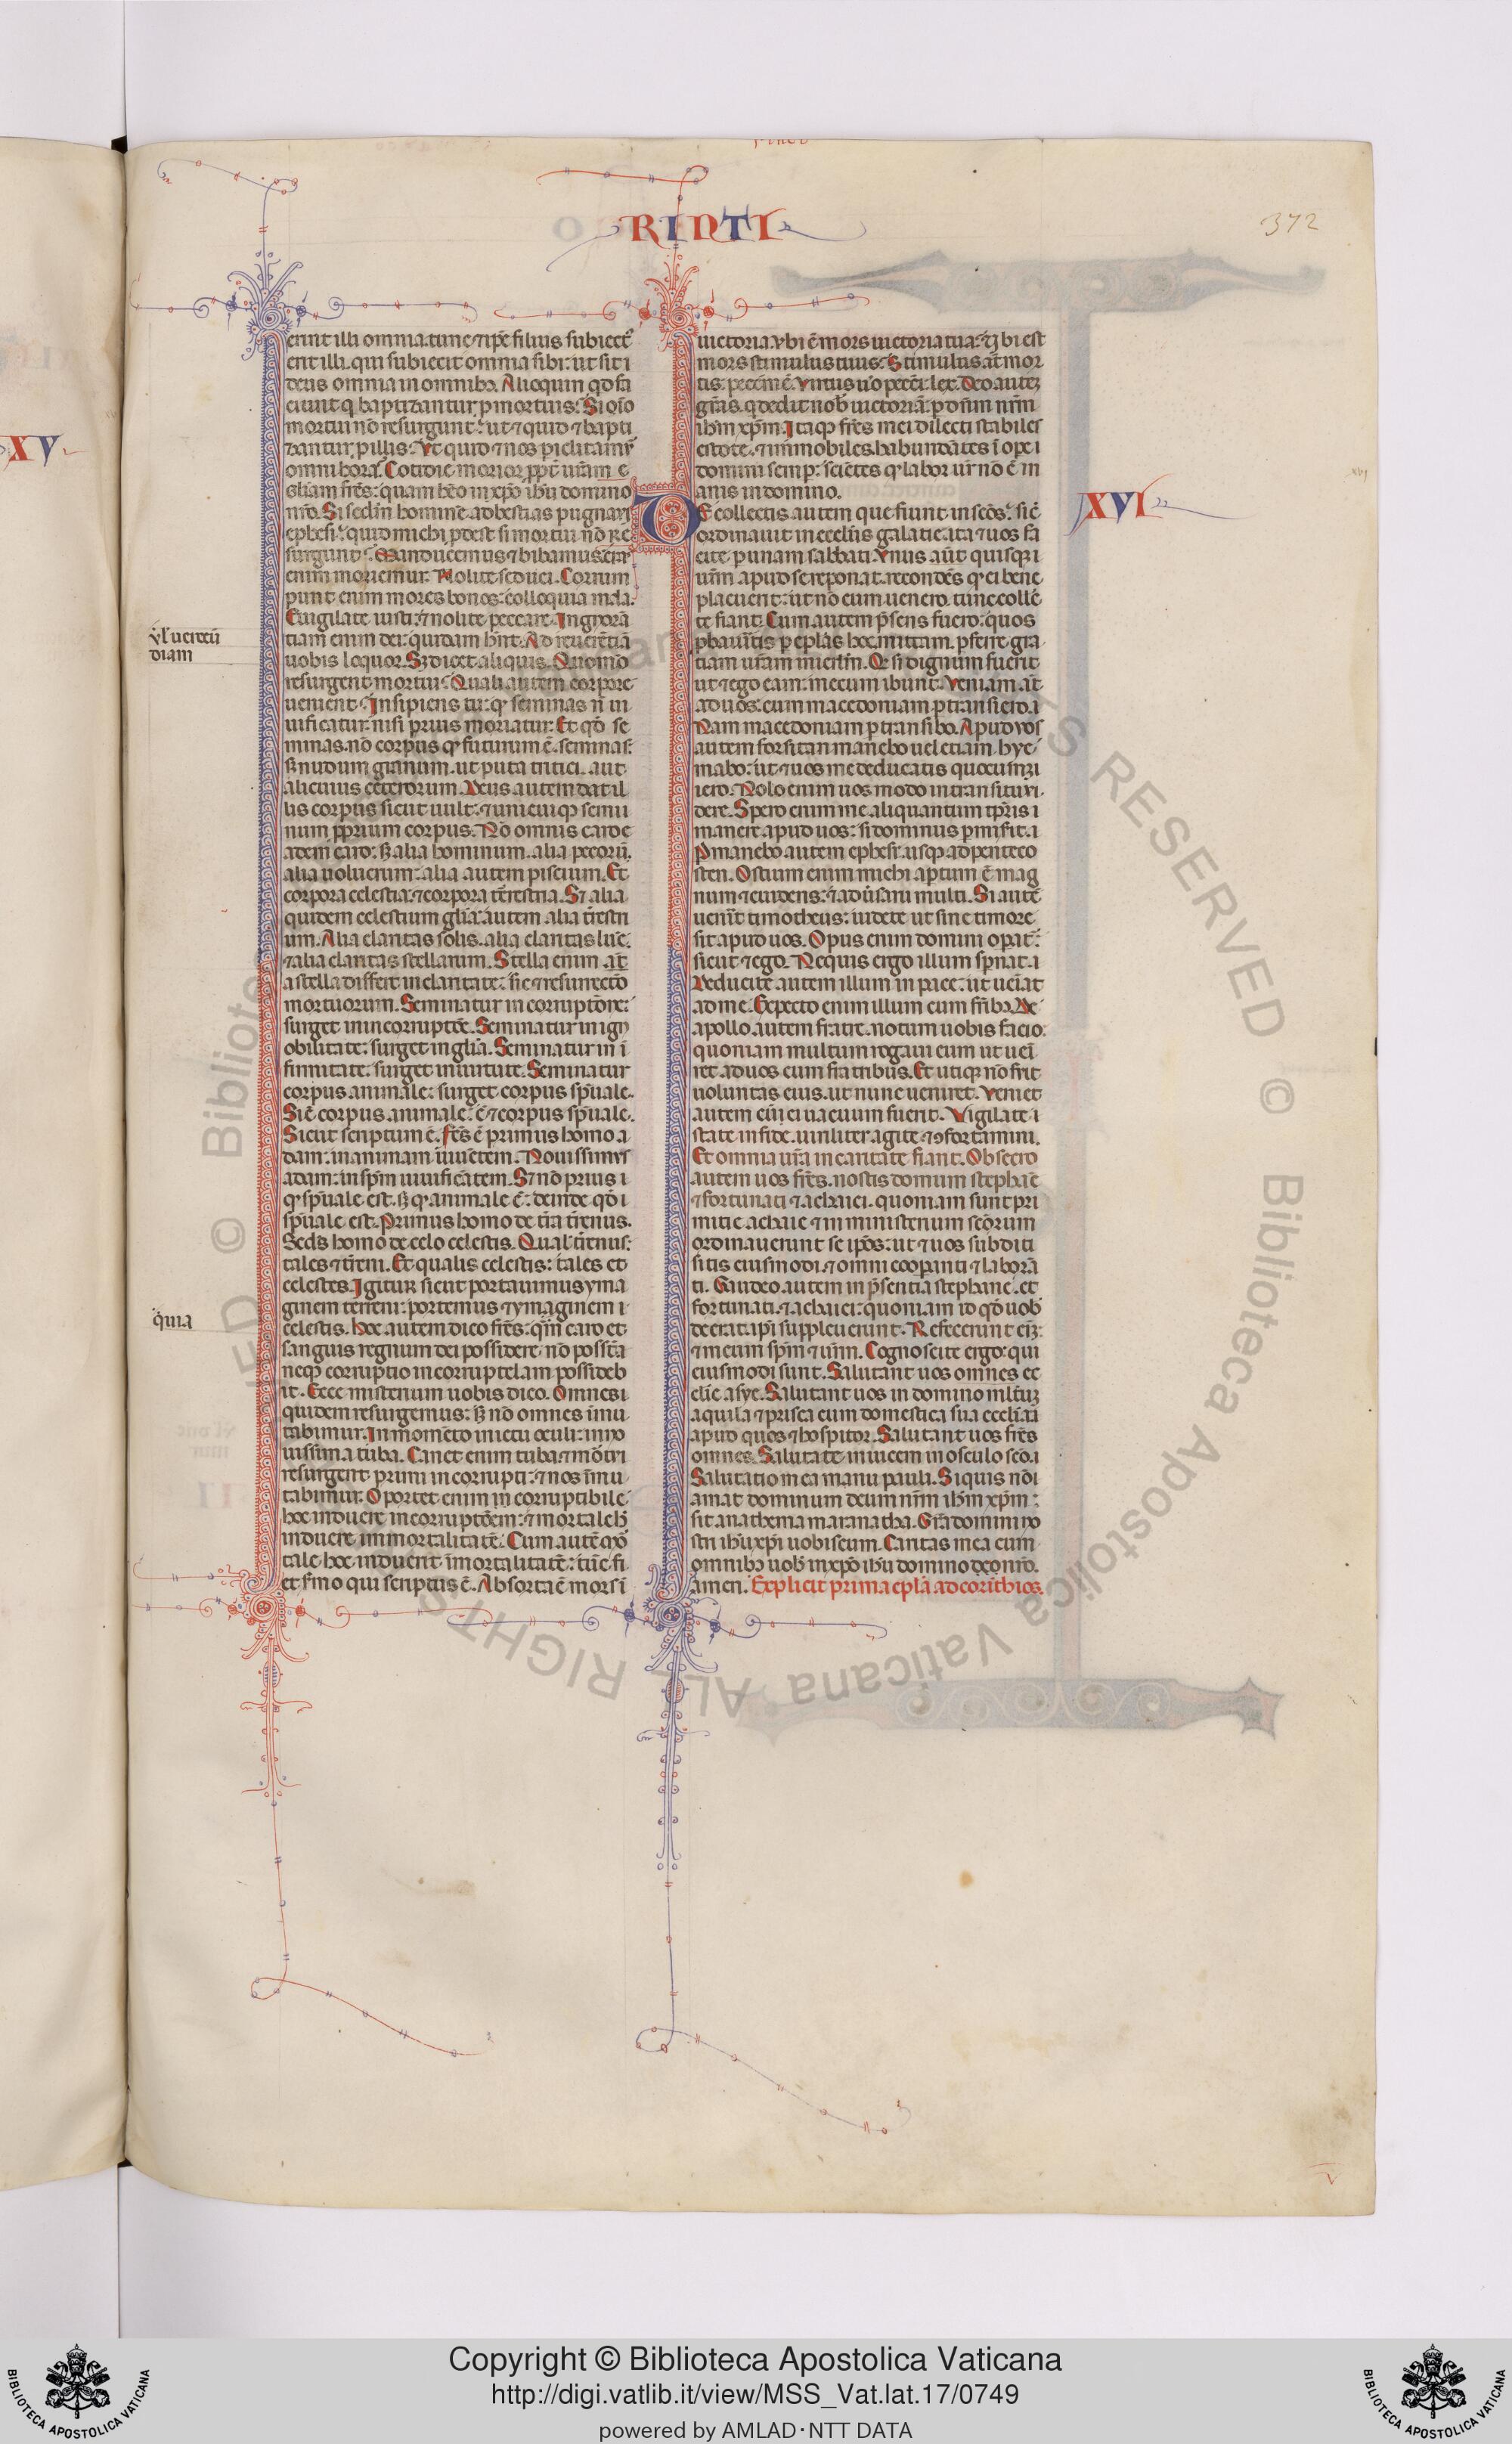 RINTI
372
XV
erint illi omnia. tunc ⁊ ip̄e filius subiect᷑
erit illi. qui subiecit omnia sibi: ut sit i
deus omnia in omnibꝫ. Alioquin qd̄ fa
cient q̄ baptizantur. ꝓ mortuis: Si oīo
mortui nō resurgunt: ut ⁊ quid ⁊ bapti
zantur. ꝓ illis: Vt quid ⁊ nos piclitamr̄
omni hora: Cotidie morior ꝓpt̄ ur̄am e
gliam fr̄es: quam h̄eo in xp̄o ih̄u domino
nr̄o. Si sed̄m homīnē ad bestias pugnaui
ephesi: quid michi ꝓdest si mortui nō re
surgunt: Manducemus ⁊ bibamus: cras
enim moriemur. Nolite seduci. Corrum
punt enim mores bonos: colloquia mala.
Euigilate iusti: ⁊ nolite peccare. Ignorā
tiam enim dei: quidam h̄nt. Ad reuerētiā
uobis loquor. Sꝫ dicet aliquis. Quomō
resurgent mortui: Quali autem corpore
uenient: Insipiens tu: qd̄ seminas n̄ ui
uificatur: nisi prius moriatur. Et qd̄ se
minas. nō corpus qd̄ futurum ē. seminas:
sꝫ nudum granum. ut puta tritici. aut
alicuius ceterorum. Deus autem dat il
lis corpus sicut uult: ⁊ unicuiqꝫ semi
num ꝓprium corpus. Nō omnis caro e
adem caro: sꝫ alia hominum. alia pecorū.
alia uolucrum: alia autem piscium. Et
corpora celestia: ⁊ corpora t̄restria. Sꝫ alia
quidem celestium gl̄ia: autem alia t̄restri
um. Alia claritas solis. alia claritas lūe:
⁊ alia claritas stellarum. Stella enim at̄
a stella differt in claritate: sic ⁊ resurrectō
mortuorum. Seminatur in corruptōne:
surget in incorruptōe. Seminatur in ign
obilitate: surget in gl̄ia. Seminatur in i
firmitate: surget in uirtute. Seminatur
corpus animale: surget corpus sp̄uale.
Si ē corpus animale: ē ⁊ corpus sp̄uale.
Sicut scriptum ē. f̄cs ē primus homo a
dam: in animam uiuētem. Nouissimus
adam: in sp̄m uiuificātem. Sꝫ nō prius i
qd̄ sp̄uale est. sꝫ qd̄ animale ē: deinde qd̄ i
sp̄uale est. Primus homo de t̄ra t̄renus.
Secd̄s homo de celo celestis. Qual' t̄renus:
tales ⁊ t̄reni. Et qualis celestis: tales et
celestes. Igitur sicut portauimus yma
ginem terreni: portemus ⁊ ymaginem i
celestis. Hoc autem dico fr̄es: qm̄ caro et
sanguis regnum dei possidere: nō possūt
neqꝫ corruptio incorruptelam possideb
it. Ecce misterium uobis dico. Omnes i
quidem resurgemus: sꝫ nō omnes īmu
tabimur. In momēto in ictu oculi: in no
uissima tuba. Canet enim tuba: ⁊ mōtri
resurgent primi incorrupti: ⁊ nos īmu
tabimur. Oportet enim in corruptibile
hoc induere incorruptōem: ⁊ mortale h̄
induere immortalitatē. Cum autē mor
tale hoc induerit īmortalitatē: tūc fi
et s̄mo qui scriptus ē. Absorta ē mors i
ul' uerecū
diam
quia
uictoria. Vbi ē mors uictoria tua: ubi est
mors stimulus tuus: Stimulus at̄ mor
tis: pecc̄m ē. Virtus u̓o pecc̄i: lex. Deo autē
gr̄as. q̄ dedit nob̄ uictoriā: ꝑ dn̄m nr̄m
ih̄m xp̄m. Itaqꝫ fr̄es mei dilecti stabiles
estote. ⁊ immobiles. habundātes ī ope i
domini semꝑ: sciētes qd̄ labor ur̄ nō ē in
anis in domino.
DE collectis autem que fiunt in scōs: sic̄
ordinaui in eccl̄iis galatie: ita ⁊ uos fa
cite. ꝑ unam sabbati. Vnus aūt quisqꝫ i
ur̄m apud se reponat. recondēs qd̄ ei bene
placuerit: ut nō cum uenero. tunc colle
te fiant. Cum autem p̄sens fuero: quos
ꝓbaueritis ꝑ epl̄as hoc mittam. ꝑferre gra
tiam ur̄am in ierl̄m. Qd̄ si dignum fuerit
ut ⁊ ego eam: mecum ibunt. Veniam at̄
ad uos: cum macedoniam ꝑtransiero. i
Nam macedoniam ꝑtransibo. Apud vos
autem forsitan manebo uel etiam hye
mabo: ut ⁊ uos me deducatis quocumqꝫ i
iero. Nolo enim uos modo in transitu ui
dere. Spero enim me aliquantum tp̄ris i
manere apud uos: si dominus ꝑmiserit. i
Permanebo autem ephesi. usqꝫ ad penteco
sten. Ostium enim michi aptum ē mag
num ⁊ euidens: ⁊ adūsarii multi. Si autē
uenerit timotheus: uidete ut sine timore
sit apud uos. Opus enim domini opat̄:
sicut ⁊ ego. Nequis ergo illum sp̄nat. i
Deducite autem illum in pace: ut ueniat
ad me. Expecto enim illum cum fr̄ibꝫ. De
apollo autem fratre. notum uobis facio:
quoniam multum rogaui eum ut ueni
ret ad uos cum fratribus. Et utiqꝫ nō fuit
uoluntas eius. ut nunc ueniret. Veniet
autem cū ei uacuum fuerit. Vigilate i
state in fide. uiriliter agite. ⁊ ꝯfortamini.
Et omnia ur̄a in caritate fiant. Obsecro
autem uos fr̄es. nostis domum stephane
⁊ fortunati ⁊ achaici. quoniam sunt pri
mitie achaie ⁊ in ministerium sc̄orum
ordinauerunt se ip̄os: ut ⁊ uos subditi
sitis eiusmodi. ⁊ omni cooperanti ⁊ laborā
ti. Gaudeo autem in p̄sentia stephane. et
fortunati. ⁊ achaici: quoniam id qd̄ uob̄
deerat ip̄i suppleuerunt. Refecerunt eīꝫ:
⁊ meum sp̄m ⁊ ur̄m. Cognoscite ergo: qui
eiusmodi sunt. Salutant uos omnes ec
clie asye. Salutant uos in domino ml̄tuꝫ
aquila ⁊ prisca cum domestica sua ecclīa: i
apud quos ⁊ hospitor. Salutant uos fr̄es
omnes. Salutate inuicem in osculo sc̄o. i
Salutatio mea manu pauli. Si quis nō i
amat dominum deum nr̄m ih̄m xp̄m:
sit anathema maranatha. Gr̄a domini no
stri ih̄u xp̄i uobiscum. Caritas mea cum
omnibꝫ uob̄ in xp̄o ih̄u domino deo nr̄o.
amen. Explicit prima epl̄a ad corīthios.
XVI
Copyright © Biblioteca Apostolica Vaticana
http://digi.vatlib.it/view/MSS_Vat.lat.17/0749
powered by AMLAD·NTT DATA
BIBLIOTECA APOSTOLICA VATICANA
BIBLIOTECA APOSTOLICA VATICANA